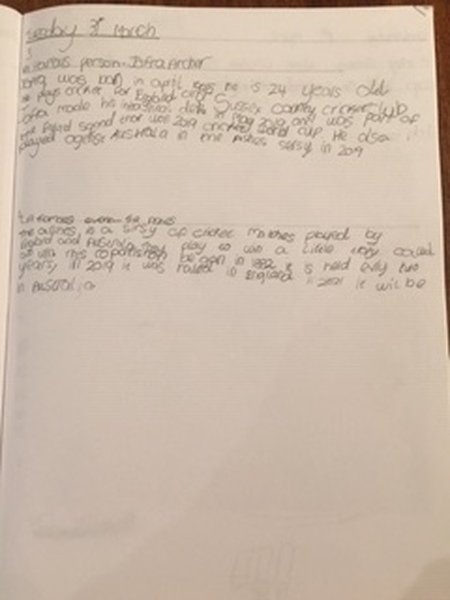 3rd March
famous person - Jofra Archer
was born in april 1995 he is 24 years old
plays cricket for England and Sussex county cricket club
made his international debut in May 2019 and was part of
the England squad that won 2019 cricket world cup. He also
played against Australia in the Ashes in 2019
famous event - the Ashes
the ashes is a of cricket matches played by
England and Australia they play to win a little called
this began in 1882 it is held two
years, in 2019 it was in England in 2021 it will be
in Australia